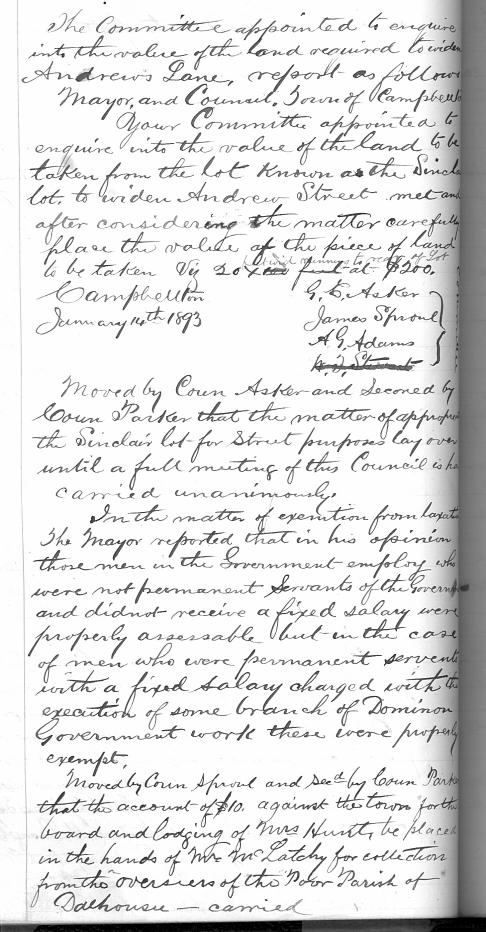 The Committee appointed to enquire
into the value of the land required to widen
Andrews Lane, report as follows
Mayor, and Council. Town of Campbell
Your Committee appointed to
enquire into the value of the land to be
taken from the lot Known as the Sincla
lot, to widen Andrew Street met and
after considering the matter carefully
place the value of the piece of land
running to rear of Lot
to be taken Viz 20 x at $200.
Campbellton
January 14th 1893
G. E. Asker
James Sproul
A G. Adams
Moved by Coun Asker and Seconed by
Coun Parker that the matter of appropri
the Sinclair lot for Street purposes lay over
until a full meeting of this Council is ha
carried unanimously.
In the matter of exemtion from taxat
The Mayor reported that in his opinion
those men in the Government employ who
were not permanent Servants of the Governm
and did not receive a fixed salary were
properly assessable but in the case
of men who were permanent servents
with a fixed salary charged with the
execution of some branch of Dominon
Government work these were properly
exempt.
Moved by Coun Sproul and Secd by Coun Park
that the account of $10. against the town for the
board and lodging of Mrs Hunt, be placed
in the hands of Mr McLatchy for collection
from the oversiers of the Poor Parish of
Dalhousie — carried